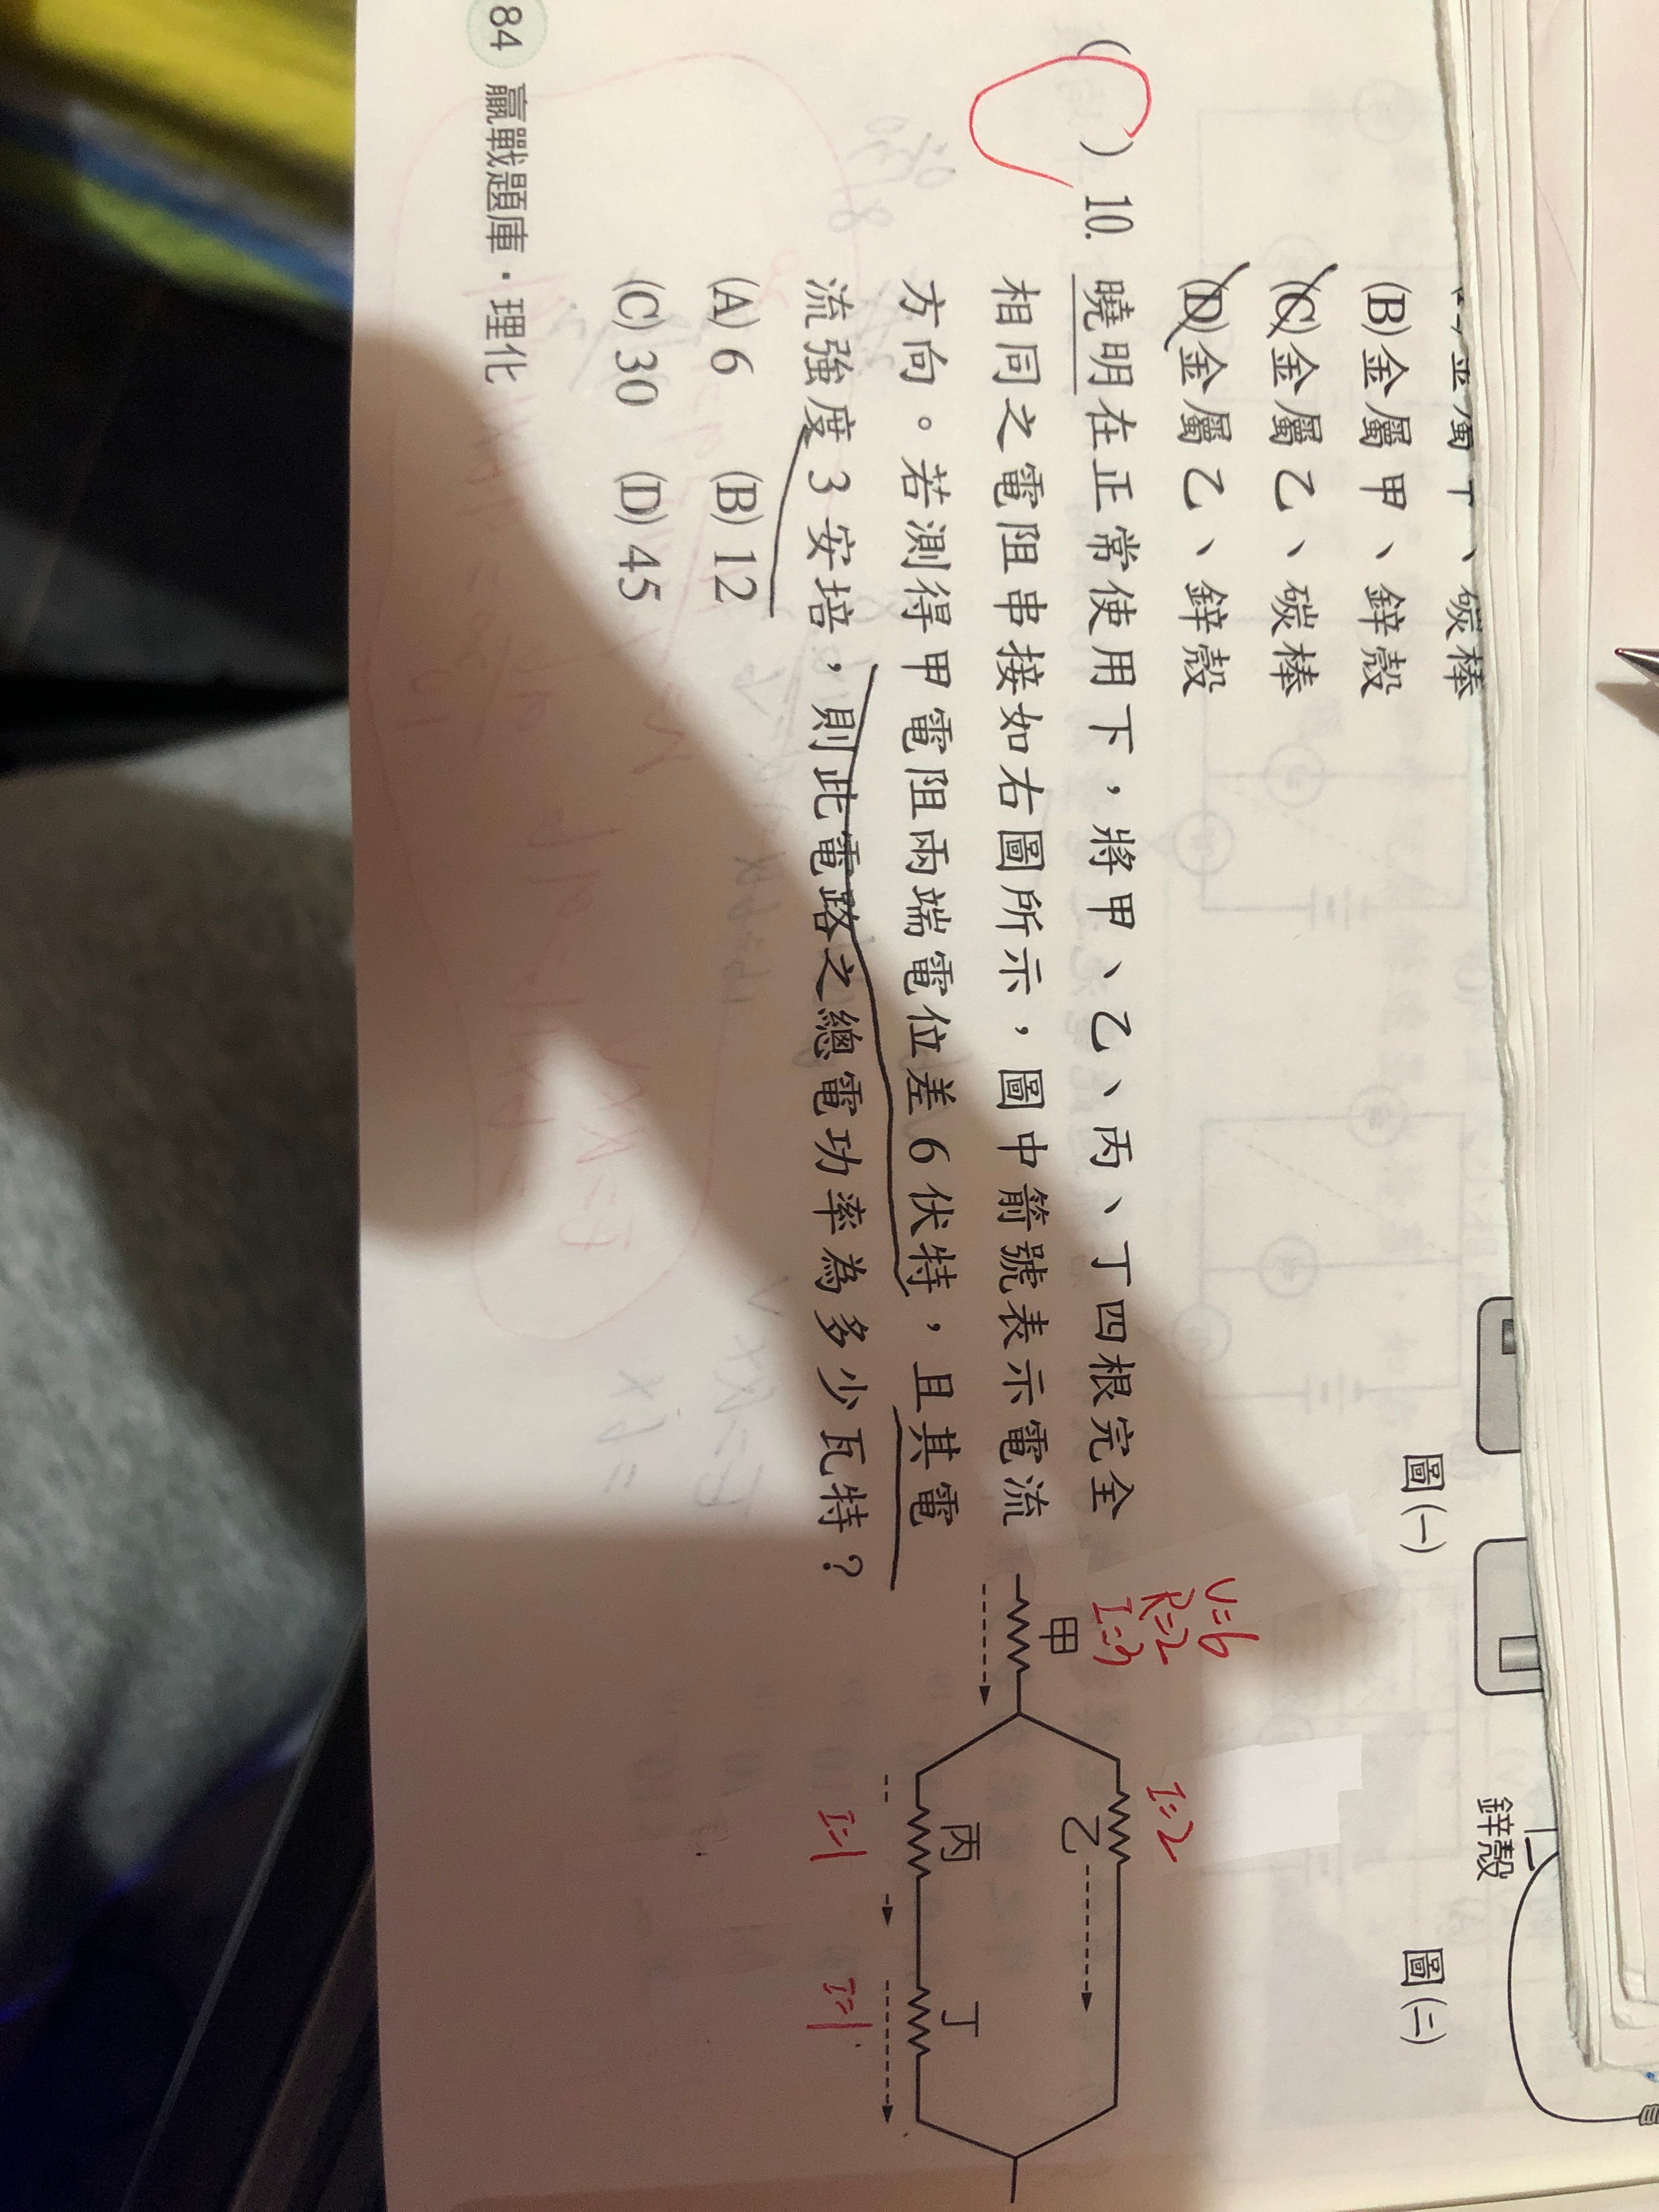 、碳棒
(B)金屬甲、鋅殼
(C)金屬乙、碳棒
(D)金屬乙、鋅殼
圖(一)
圖(二)
鋅殼
( ) 10. 曉明在正常使用下，將甲、乙、丙、丁四根完全
相同之電阻串接如右圖所示，圖中箭號表示電流
方向。若測得甲電阻兩端電位差 6 伏特，且其電
流強度 3 安培，則此電路之總電功率為多少瓦特？
(A) 6 (B) 12
(C) 30 (D) 45
V=6
R=2
I=3
甲
I=2
乙
丙
I=1
丁
I=1
84 贏戰題庫・理化